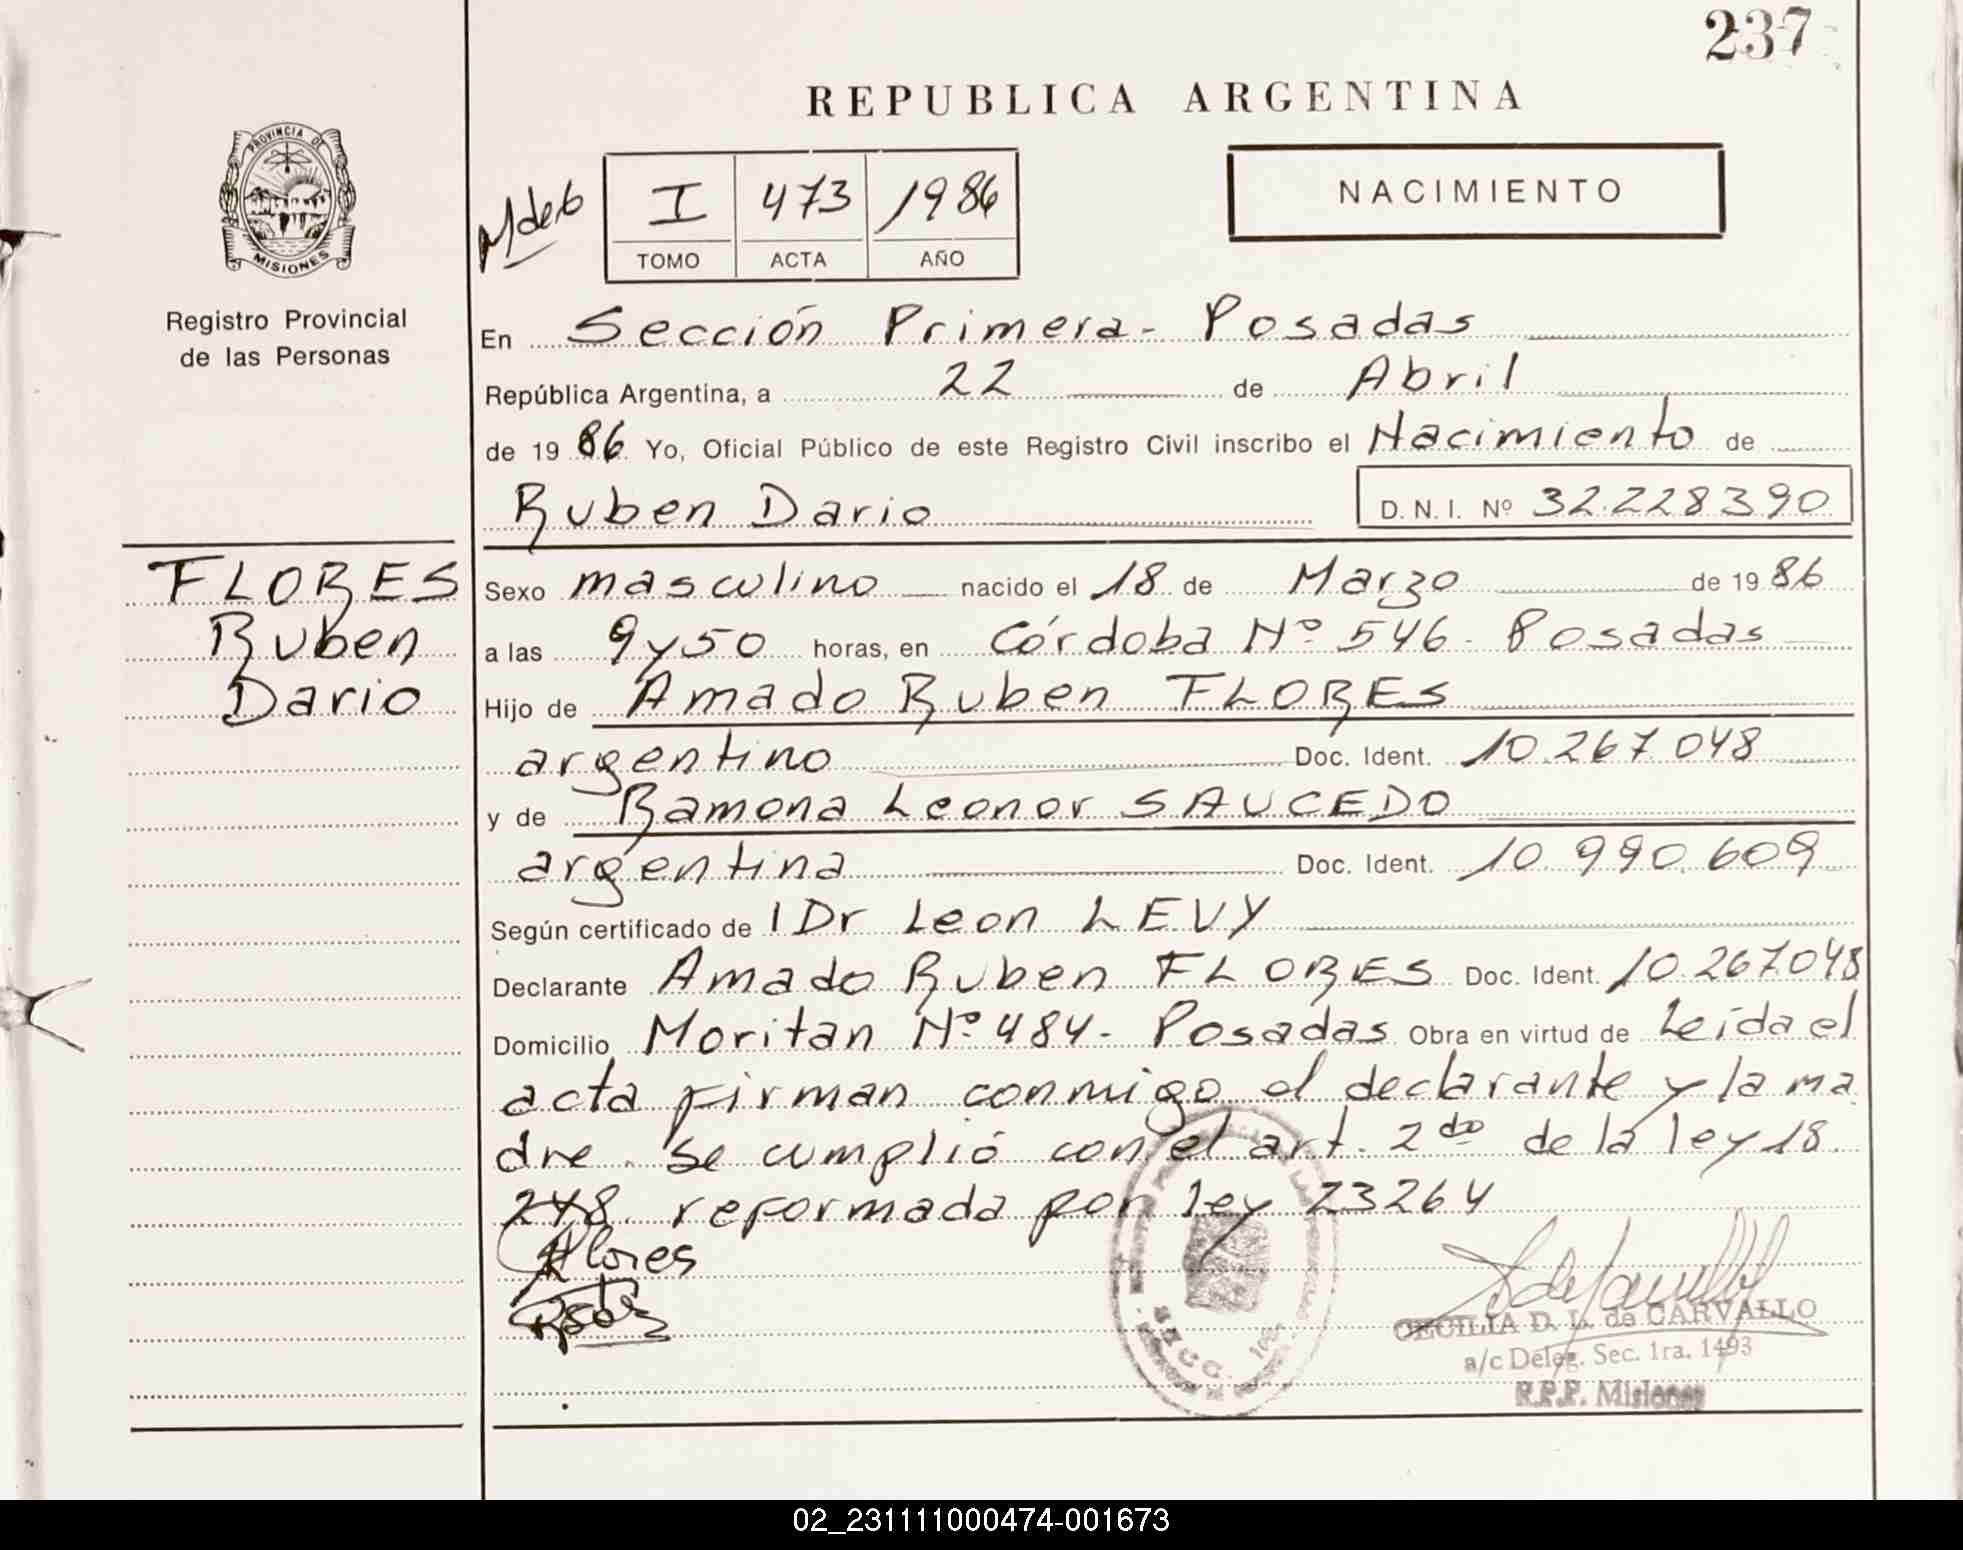 237
REPUBLICA ARGENTINA
PROVINCIA DE
MISIONES
Registro Provincial
de las Personas
I 473 1986
TOMO ACTA AÑO
NACIMIENTO
En Sección Primera - Posadas
República Argentina, a 22 de Abril
de 1986 Yo, Oficial Público de este Registro Civil inscribo el Nacimiento de
Ruben Dario D. N. I. Nº 32.228390
FLORES
Ruben
Dario
Sexo masculino nacido el 18 de Marzo de 1986
a las 9 y 50 horas, en Córdoba Nº 546 - Posadas
Hijo de Amado Ruben FLORES
argentino Doc. Ident. 10.267.048
y de Ramona Leonor SAUCEDO
argentina Doc. Ident. 10.990.609
Según certificado de l Dr Leon LEVY
Declarante Amado Ruben FLORES Doc. Ident. 10.267.048
Domicilio Moritan Nº 484 - Posadas Obra en virtud de Leída el
acta firman conmigo el declarante y la ma
dre. Se cumplió con el art. 2do de la ley 18.
248. reformada por ley 23264
Flores
CECILIA D. L. de CARVALLO
a/c Deleg. Sec. 1ra. 1493
R.P.P. Misiones
02_231111000474-001673